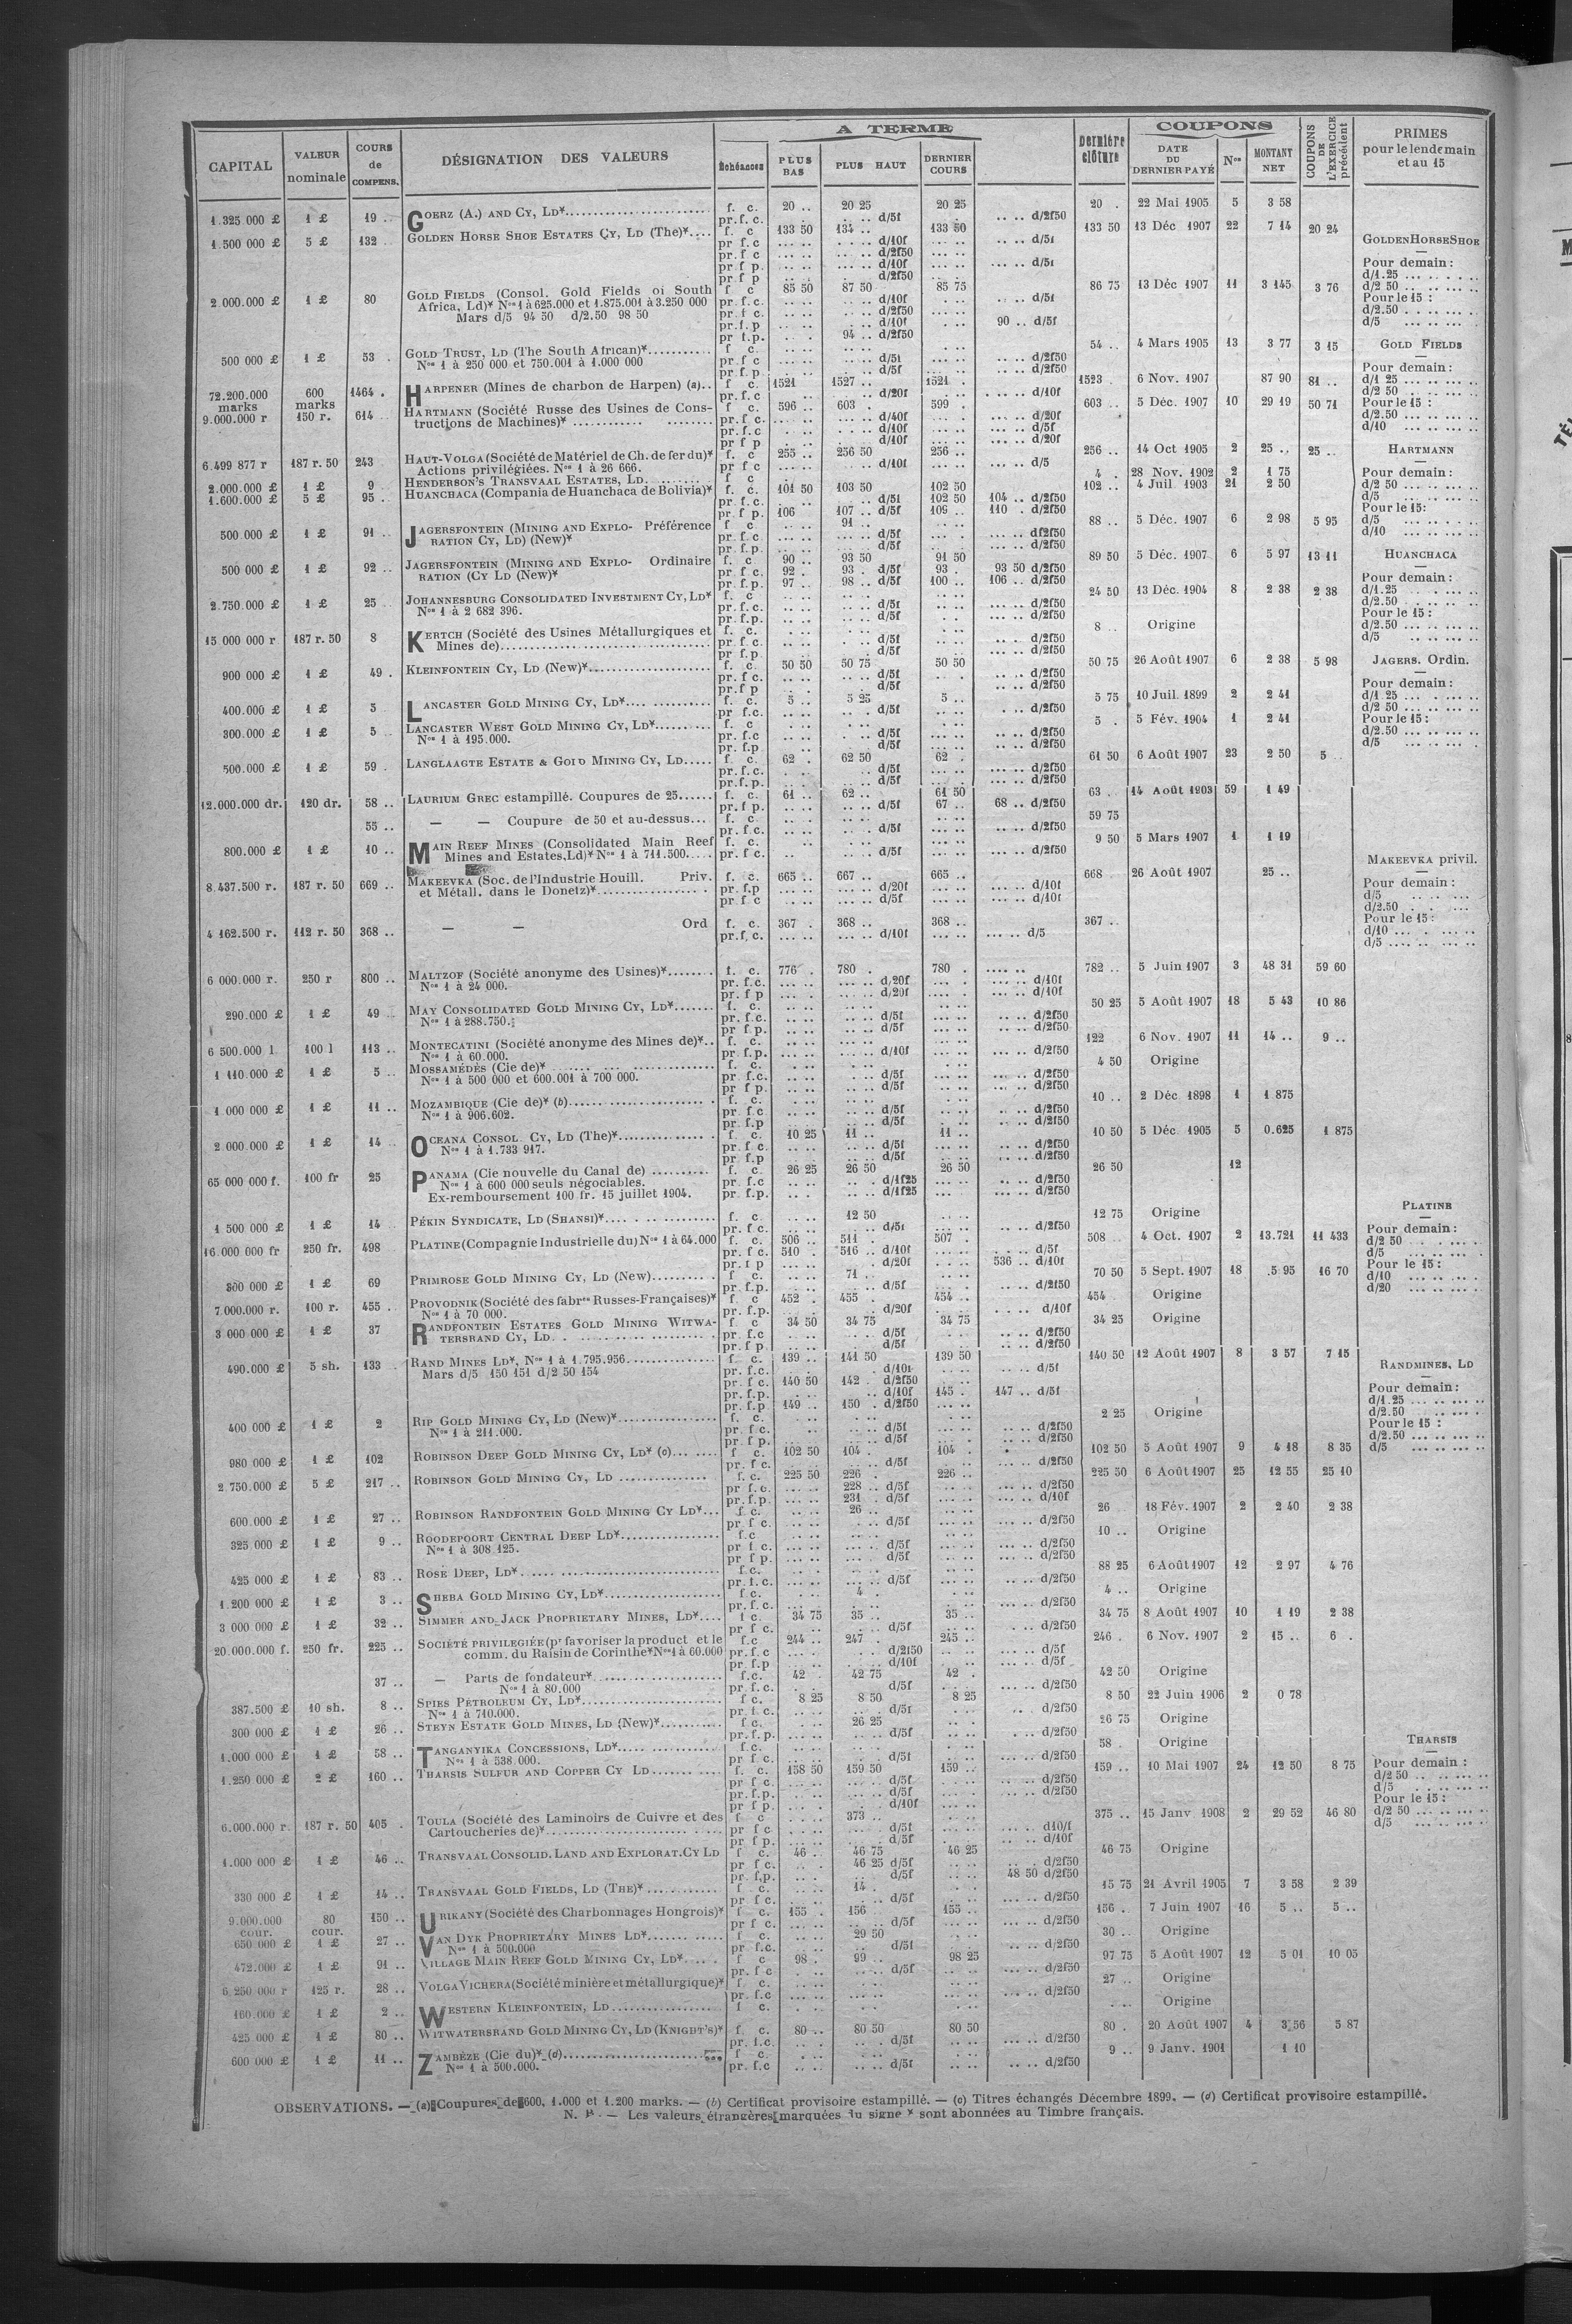 CAPITAL VALEUR nominale COURS de COMPENS. DÉSIGNATION DES VALEURS A TERME Échéances PLUS BAS PLUS HAUT DERNIER COURS DERNIÈRE CLÔTURE COUPONS DATE DU DERNIER PAYÉ Nos MONTANT NET COUPONS DE L'EXERCICE précédent PRIMES pour le lendemain et au 15
1.325 000 £ 1 £ 19 .. GOERZ (A.) AND CY, LD* f. c. 20 .. 20 25 20 25 20 . 22 Mai 1905 5 3 58
pr. f. c. d/5f d/2f50
1.500 000 £ 5 £ 132 .. GOLDEN HORSE SHOE ESTATES CY, LD (The)* f. c 133 50 134 .. 133 50 133 50 13 Déc 1907 22 7 14 20 24
pr f.c d/10f d/5f
pr f c d/2f50
pr f p. d/10f d/5f
pr f p d/2f50
2.000.000 £ 1 £ 80 GOLD FIELDS (Consol. Gold Fields of South f c 85 50 87 50 85 75 86 75 13 Déc 1907 11 3 145 3 76
Africa, Ld)* Nos 1 à 625.000 et 1.875.001 à 3.250 000 pr. f. c. d/10f d/5f
Mars d/5 94 50 d/2.50 98 50 pr. f c. d/2f50
pr. f. p d/10f 90 .. d/5f
pr f.p. 94 .. d/2f50
500 000 £ 1 £ 53 . GOLD TRUST, LD (The South African)* f c. 54 .. 4 Mars 1905 13 3 77 3 15
Nos 1 à 250 000 et 750.001 à 1.000 000 pr f c d/5f d/2f50
pr. f. p. d/5f d/2f50
72.200.000 marks 600 marks 1464 . HARPENER (Mines de charbon de Harpen) (a).. f c. 1521 1527 .. 1521 . 1523 . 6 Nov. 1907 87 90 81 ..
pr. f. c d/20f d/10f
9.000.000 r 150 r. 614 HARTMANN (Société Russe des Usines de Cons- f c. 596 .. 603 . 599 . 603 .. 5 Déc. 1907 10 29 19 50 71
tructions de Machines)* pr. f c. d/40f d/20f
pr. f. c d/10f d/5f
pr f p d/10f d/20f
6.499 877 r 187 r. 50 243 HAUT-VOLGA (Société de Matériel de Ch. de fer du)* f. c 255 .. 256 50 256 .. 256 .. 14 Oct 1905 2 25 .. 25 ..
Actions privilégiées. Nos 1 à 26 666. pr f c d/10f d/5
2.000.000 £ 1 £ 9 .. HENDERSON'S TRANSVAAL ESTATES, LD. f c 4 . 28 Nov. 1902 2 1 75
1.600.000 £ 5 £ 95 .. HUANCHACA (Compania de Huanchaca de Bolivia)* f. c. 101 50 103 50 102 50 102 .. 4 Juil 1903 21 2 50
pr. f. c. d/5f 102 50 104 .. d/2f50
pr f p. 106 107 .. d/5f 109 .. 110 . d/2f50
500 000 £ 1 £ 91 .. JAGERSFONTEIN (MINING AND EXPLO- Préférence f c 91 .. 88 .. 5 Déc. 1907 6 2 98 5 95
RATION CY, LD) (New)* pr. f. c d/5f d/2f50
pr. f. p. d/5f d/2f50
500 000 £ 1 £ 92 .. JAGERSFONTEIN (MINING AND EXPLO- Ordinaire f. c. 90 .. 93 50 91 50 89 50 5 Déc. 1907 6 5 97 13 11
RATION (CY LD (New)* pr. f c. 92 . 93 . d/5f 93 . 93 50 d/2f50
pr. f. p. 97 . 98 .. d/5f 100 .. 106 .. d/2f50
2.750.000 £ 1 £ 25 JOHANNESBURG CONSOLIDATED INVESTMENT CY, LD* f. c 24 50 13 Déc. 1904 8 2 38 2 38
Nos 1 à 2 682 396. pr. f. c. d/5f d/2f50
pr. f. p. d/5f d/2f50
15 000 000 r 187 r. 50 8 KERTCH (Société des Usines Métallurgiques et f. c. 8 Origine
Mines de) pr. f c. d/5f d/2f50
pr. f.p d/5f d/2f50
900 000 £ 1 £ 49 . KLEINFONTEIN CY, LD (New)* f. c. 50 50 50 75 50 50 50 75 26 Août 1907 6 2 38 5 98
pr. f c. d/5f d/2f50
pr. f p d/5f d/2f50
400.000 £ 1 £ 5 LANCASTER GOLD MINING CY, LD* f. c. 5 .. 5 25 5 .. 5 75 10 Juil. 1899 2 2 41
pr f. c. d/5f d/2f50
300.000 £ 1 £ 5 LANCASTER WEST GOLD MINING CY, LD* f. c 5 5 Fév. 1904 1 2 41
Nos 1 à 195.000. pr. f. c d/5f d/2f50
pr. f.p d/5f d/2f50
500.000 £ 1 £ 59 LANGLAAGTE ESTATE & GOLD MINING CY, LD f. c. 62 . 62 50 62 . 61 50 6 Août 1907 23 2 50 5 ..
pr. f. c. d/5f d/2f50
pr. f. p. d/5f d/2f50
12.000.000 dr. 120 dr. 58 .. LAURIUM GREC estampillé. Coupures de 25 f. c. 61 .. 62 .. 61 50 63 . 14 Août 1903 59 1 49
pr. f p. d/5f 67 .. 68 .. d/2f50
55 .. — — Coupure de 50 et au-dessus... f. c 59 75
pr. f c. d/5f d/2f50
800.000 £ 1 £ 10 .. MAIN REEF MINES (Consolidated Main Reef f. c. 9 50 5 Mars 1907 1 1 19
Mines and Estates, Ld)* Nos 1 à 711.500. pr. f c. d/5f d/2f50
8.437.500 r. 187 r. 50 669 .. MAKEEVKA (Soc. de l'Industrie Houill. Priv. f. c. 665 .. 667 .. 665 .. 668 26 Août 1907 25 ..
et Métall. dans le Donetz)* pr. f.p d/20f d/10f
pr f c d/5f d/10f
4 162.500 r. 112 r. 50 368 .. — — Ord f. c. 367 . 368 .. 368 .. 367 ..
pr. f. c. d/10f d/5
6 000.000 r. 250 r 800 .. MALTZOF (Société anonyme des Usines)* f. c. 776 . 780 . 780 . 782 .. 5 Juin 1907 3 48 31 59 60
Nos 1 à 24 000. pr. f.c. d/20f d/10f
pr. f p d/20f d/10f
290.000 £ 1 £ 49 .. MAY CONSOLIDATED GOLD MINING CY, LD* f. c. 50 25 5 Août 1907 18 5 43 10 86
Nos 1 à 288.750. pr. f.c. d/5f d/2f50
pr f p. d/5f d/2f50
6 500.000 l 100 l 113 .. MONTECATINI (Société anonyme des Mines de)* f. c. 122 6 Nov. 1907 11 14 .. 9 ..
Nos 1 à 60.000. pr. f.p. d/10f d/2f50
1 110.000 £ 1 £ 5 .. MOSSAMÉDÈS (Cie de)* f. c. 4 50 Origine
Nos 1 à 500 000 et 600.001 à 700 000. pr f.c. d/5f d/2f50
pr f p. d/5f d/2f50
1.000 000 £ 1 £ 11 .. MOZAMBIQUE (Cie de)* (b) f. c. 10 .. 2 Déc 1898 1 1 875
Nos 1 à 906.602. pr. f c d/5f d/2f50
pr. f.p d/5f d/2f50
2 000.000 £ 1 £ 14 .. OCEANA CONSOL. CY, LD (The)* f c. 10 25 11 .. 11 .. 10 50 5 Déc. 1905 5 0.625 1 875
Nos 1 à 1.733 917. pr. f c. d/5f d/2f50
pr. f.p d/5f d/2f50
65 000 000 f. 100 fr 25 PANAMA (Cie nouvelle du Canal de) f. c. 26 25 26 50 26 50 26 50 12
Nos 1 à 600 000 seuls négociables. pr. f.c d/1f25 d/2f50
Ex-remboursement 100 fr. 15 juillet 1904. pr. f.p. d/1f25 d/2f50
1 500 000 £ 1 £ 14 PÉKIN SYNDICATE, LD (SHANSI)* f. c 12 50 12 75 Origine
pr. f c. d/5f d/2f50
16.000 000 fr 250 fr. 498 PLATINE (Compagnie Industrielle du) Nos 1 à 64.000 f. c. 506 .. 511 . 507 . 508 .. 4 Oct. 1907 2 13.721 11 433
pr. f c. 510 . 516 .. d/10f d/5f
pr. f p d/20f 536 .. d/10f
300 000 £ 1 £ 69 PRIMROSE GOLD MINING CY, LD (New) f c. 71 . 70 50 5 Sept. 1907 18 5 95 16 70
pr. f.p. d/5f d/2f50
7.000.000 r. 100 r. 455 . PROVODNIK (Société des fabres Russes-Françaises)* f. c 452 . 455 . 454 .. 454 Origine
Nos 1 à 70 000. pr. f.p. d/20f d/10f
3 000 000 £ 1 £ 37 RANDFONTEIN ESTATES GOLD MINING WITWA- f. c 34 50 34 75 34 75 34 25 Origine
TERSRAND CY, LD. pr. f.c d/5f d/2f50
pr f p. d/5f d/2f50
490.000 £ 5 sh. 133 RAND MINES LD*, Nos 1 à 1.795.956. f c. 139 .. 141 50 139 50 140 50 12 Août 1907 8 3 57 7 15
Mars d/5 150 151 d/2 50 154 pr. f.c. d/10f d/5f
pr. f c. 140 50 142 . d/2f50
pr. f.p. d/10f 145 . 147 .. d/5f
pr. f.p 149 .. 150 . d/2f50
400 000 £ 1 £ 2 RIP GOLD MINING CY, LD (New)* f. c. 2 25 Origine
Nos 1 à 211.000. pr. f c. d/5f d/2f50
pr. f p. d/5f d/2f50
980 000 £ 1 £ 102 ROBINSON DEEP GOLD MINING CY, LD* (c) f c. 102 50 104 . 104 . 102 50 5 Août 1907 9 4 18 8 35
pr. f c. d/5f d/2f50
2 750.000 £ 5 £ 217 .. ROBINSON GOLD MINING CY, LD f. c. 225 50 226 . 226 .. 225 50 6 Août 1907 25 12 55 25 10
pr f.c. 228 .. d/5f d/2f50
pr. f.p. 231 . d/5f d/10f
600.000 £ 1 £ 27 .. ROBINSON RANDFONTEIN GOLD MINING CY LD* f. c. 26 .. 26 18 Fév. 1907 2 2 40 2 38
pr f c. d/5f d/2f50
325 000 £ 1 £ 9 .. ROODEPOORT CENTRAL DEEP LD* f.c 10 .. Origine
Nos 1 à 308 125. pr f c. d/5f d/2f50
pr f p. d/5f d/2f50
425 000 £ 1 £ 83 .. ROSE DEEP, LD* f.c. 88 25 6 Août 1907 12 2 97 4 76
pr. f. c. d/5f d/2f50
1.200 000 £ 1 £ 3 .. SHEBA GOLD MINING CY, LD* f c. 4 . 4 .. Origine
pr. f.c. d/2f50
3 000 000 £ 1 £ 32 .. SIMMER AND JACK PROPRIETARY MINES, LD* f c. 34 75 35 .. 35 .. 34 75 8 Août 1907 10 1 19 2 38
pr f c. d/5f d/2f50
20.000.000 f. 250 fr. 225 .. SOCIÉTÉ PRIVILEGIÉE (pr favoriser la product et le f.c 244 .. 247 . 245 .. 246 . 6 Nov. 1907 2 15 .. 6 .
comm. du Raisin de Corinthe* Nos 1 à 60.000 pr. f.c d/2f50 d/5f
pr. f.p d/10f d/5f
37 .. — Parts de fondateur* f.c. 42 . 42 75 42 . 42 50 Origine
Nos 1 à 80.000 pr. f.c. d/5f d/2f50
387.500 £ 10 sh. 8 .. SPIES PÉTROLEUM CY, LD* f c. 8 25 8 50 8 25 8 50 22 Juin 1906 2 0 78
Nos 1 à 710.000. pr. f.c. d/5f d/2f50
300 000 £ 1 £ 26 .. STEYN ESTATE GOLD MINES, LD (New)* f c. 26 25 26 75 Origine
pr. f.p. d/5f d/2f50
1.000 000 £ 1 £ 58 .. TANGANYIKA CONCESSIONS, LD* f.c. 58 . Origine
Nos 1 à 538 000. pr f c. d/5f d/2f50
1.250 000 £ 2 £ 160 .. THARSIS SULFUR AND COPPER CY LD f. c. 158 50 159 50 159 .. 159 .. 10 Mai 1907 24 12 50 8 75
pr f c. d/5f d/2f50
pr. f.p. d/5f d/2f50
pr f p. d/10f
6.000.000 r. 187 r. 50 405 . TOULA (Société des Laminoirs de Cuivre et des f c 373 .. 375 .. 15 Janv 1908 2 29 52 46 80
Cartoucheries de)* pr f c d/5f d10/f
pr f p. d/5f d/10f
1.000 000 £ 1 £ 46 .. TRANSVAAL CONSOLID. LAND AND EXPLORAT. CY LD f c. 46 .. 46 75 46 25 46 75 Origine
pr f c. 46 25 d/5f d/2f50
pr. f.p. d/5f 48 50 d/2f50
330 000 £ 1 £ 14 .. TRANSVAAL GOLD FIELDS, LD (THE)* f c. 14 . 15 75 21 Avril 1905 7 3 58 2 39
pr f c. d/5f d/2f50
9.000.000 cour. 80 cour. 150 .. URIKANY (Société des Charbonnages Hongrois)* f c. 155 . 156 155 .. 156 . 7 Juin 1907 16 5 .. 5 ..
pr f c. d/5f d/2f50
650 000 £ 1 £ 27 .. VAN DYK PROPRIETARY MINES LD* f c. 29 50 30 .. Origine
Nos 1 à 500.000 pr f.c. d/5f d/2f50
472.000 £ 1 £ 91 .. VILLAGE MAIN REEF GOLD MINING CY, LD* f c 98 . 99 .. 98 25 97 75 5 Août 1907 12 5 01 10 05
pr. f c d/5f d/2f50
6 250 000 r 125 r. 28 .. VOLGA VICHERA (Société minière et métallurgique)* f c. 27 .. Origine
pr. f.c d/2f50
160.000 £ 1 £ 2 .. WESTERN KLEINFONTEIN, LD f c. Origine
425 000 £ 1 £ 80 .. WITWATERSRAND GOLD MINING CY, LD (KNIGHT'S)* f. c. 80 .. 80 50 80 50 80 . 20 Août 1907 4 3 56 5 87
pr. f.c. d/5f d/2f50
600 000 £ 1 £ 11 .. ZAMBÈZE (Cie du)* (d) f c. 9 .. 9 Janv. 1901 1 10
Nos 1 à 500.000. pr. f.c d/5f d/2f50
GOLDEN HORSE SHOE
Pour demain:
d/1.25
d/2 50
Pour le 15 :
d/2.50
d/5
GOLD FIELDS
Pour demain:
d/1 25
d/2 50
Pour le 15 :
d/2.50
d/10
HARTMANN
Pour demain:
d/2 50
d/5
Pour le 15:
d/5
d/10
HUANCHACA
Pour demain:
d/1.25
d/2.50
Pour le 15 :
d/2.50
d/5
JAGERS. Ordin.
Pour demain:
d/1 25
d/2 50
Pour le 15 :
d/2.50
d/5
MAKEEVKA privil.
Pour demain :
d/5
d/2.50
Pour le 15 :
d/10
d/5
PLATINE
Pour demain :
d/2 50
d/5
Pour le 15 :
d/10
d/20
RANDMINES, LD
Pour demain:
d/1.25
d/2.50
Pour le 15 :
d/2.50
d/5
THARSIS
Pour demain :
d/2 50
d/5
Pour le 15 :
d/2 50
d/5
OBSERVATIONS. — (a) Coupures de 600, 1.000 et 1.200 marks. — (b) Certificat provisoire estampillé. — (c) Titres échangés Décembre 1899. — (d) Certificat provisoire estampillé.
N. B. — Les valeurs étrangères marquées du signe * sont abonnées au Timbre français.